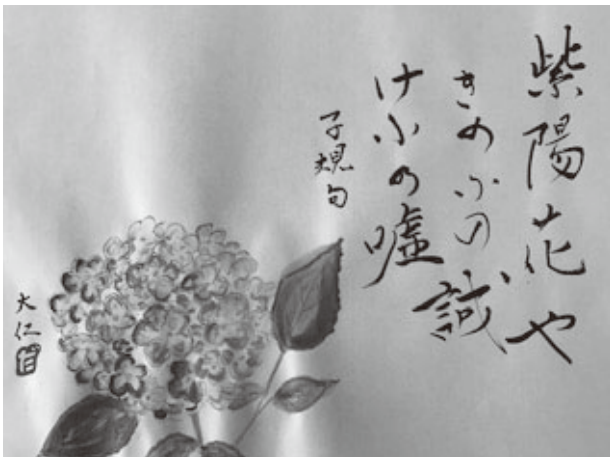 紫陽花や
きのふの誠
けふの嘘
子規句
大仁